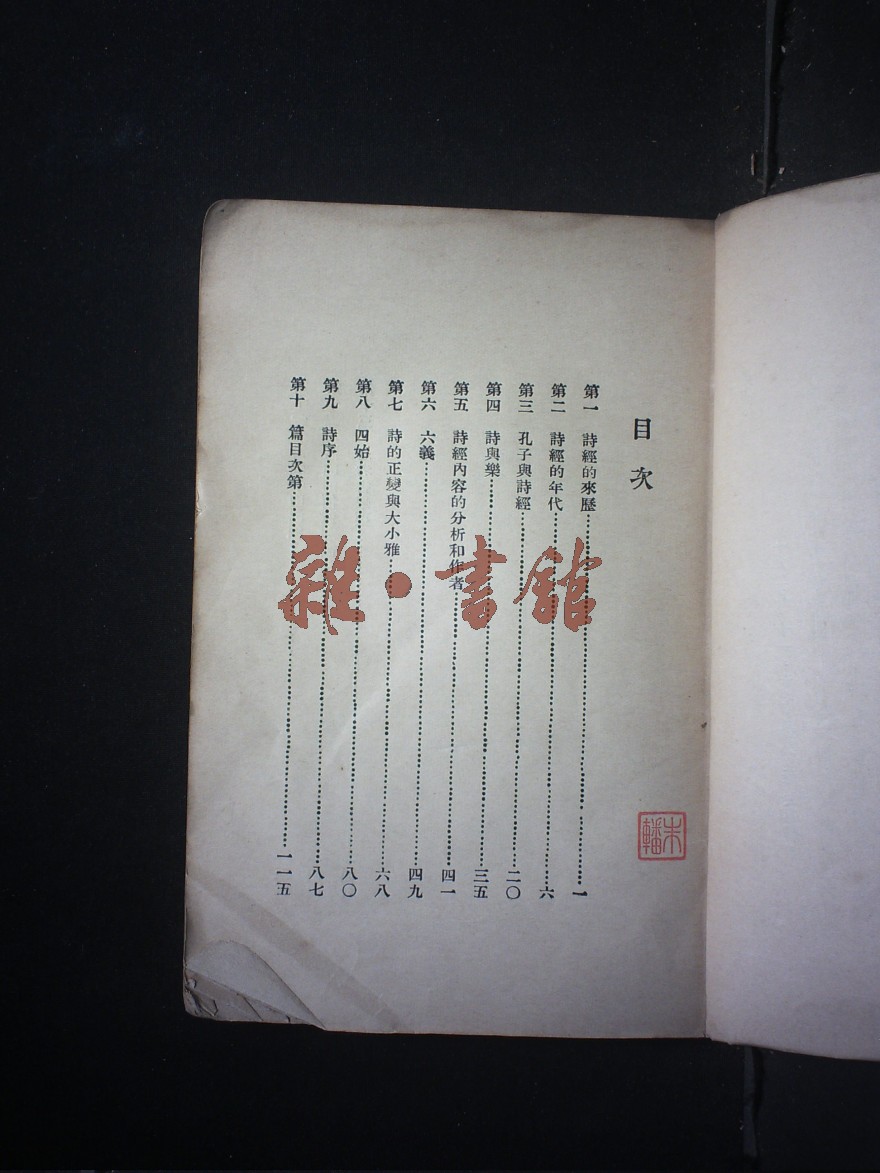 目次
第一　詩經的來歷……一
第二　詩經的年代……六
第三　孔子與詩經……二〇
第四　詩與樂……三五
第五　詩經內容的分析和作者……四一
第六　六義……四九
第七　詩的正變與大小雅……六八
第八　四始……八〇
第九　詩序……八七
第十　篇目次第……一一五
雜·書館